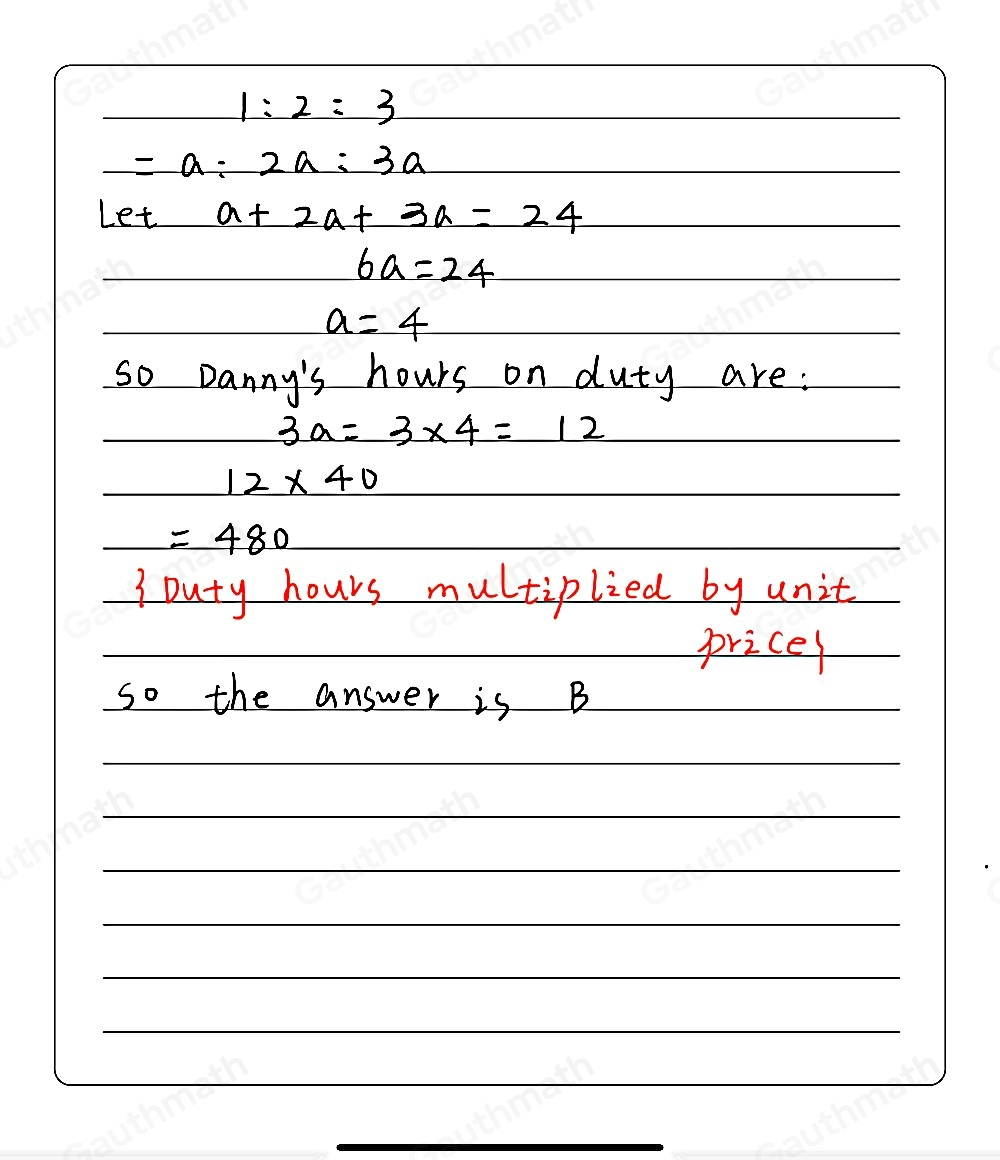 1 : 2 : 3
= a : 2a : 3a
Let a + 2a + 3a = 24
6a = 24
a = 4
So Danny's hours on duty are :
3a = 3 × 4 = 12
12 × 40
= 480
{ Duty hours multiplied by unit
price }
So the answer is B
Gauthmath